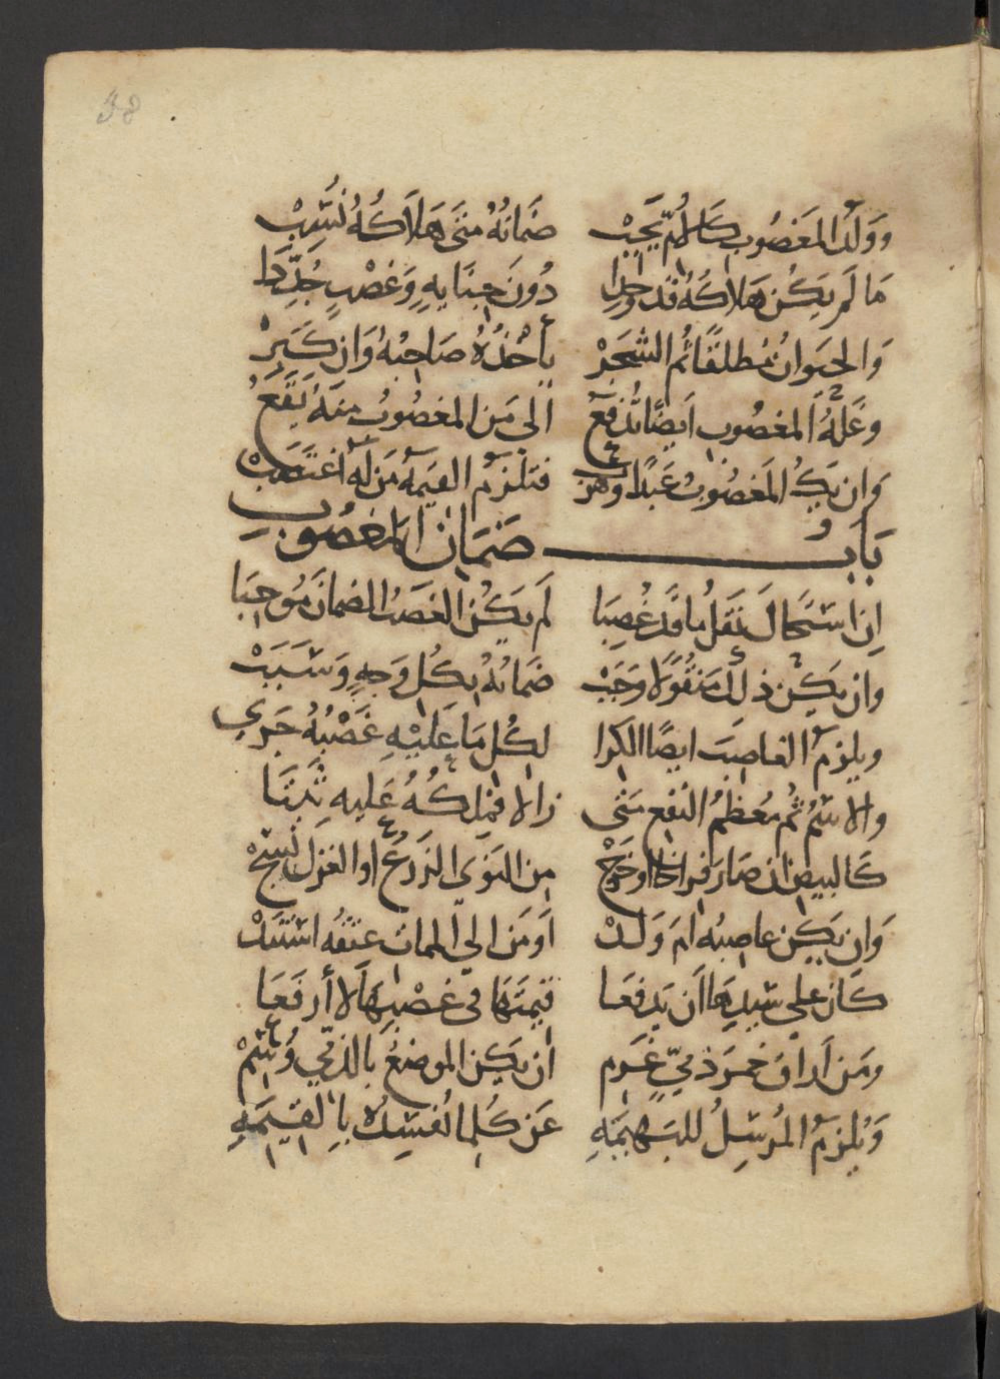 38
وَوَلَدُ المَغصُوبِ كَالأُمِّ يَجِبْ ضَمَانُهُ مَتَى هَلَاكُهُ نُسِبْ
مَا لَمْ يَكُنْ هَلَاكُهُ قَد وُجِدَا دُونَ جِنَايَهٍ وَغَصْبٍ جُدِّدَا
وَالحَيَوانُ مُطلقًا ثُم الشجَرْ يأخُذُهُ صَاحِبُهُ وَان كَبِرْ
وغَلَّةُ المغصُوبِ ايضًا تُدْفَعُ الى مَن المغصُوبُ مِنهُ يَقَعُ
وَان يَكُ المَغصُوبُ عَبدًا وَهَربْ فتلزمُ القيمَهُ مَن لهُ اغتَصَبْ
بَابُ ضَمَان المَغصُوبِ
اِن استَحَالَ نَقَلُ مَا قَد غُصِبَا لَم يَكُن الغَصَبُ الضمانَ مُوجِبَا
وان يَكُن ذلكَ مَنقُولًا وَجَبْ ضَمَانُهُ بكُل وَجهٍ وَسَبَبْ
ويلزمُ الغاصِبَ ايضًا الكرا لكُل مَا عَليْهِ غَصْبُهُ جَرَى
والاسمُ ثُم مُعظمُ النفع متى زالا فمِلكُهُ عَليهِ ثَبتَا
كَالبيض ان صَارَ فراخًا او خَرَجْ مِن النوَى الزرعُ او الغزل نُسِجْ
وَان يَكُن غاصِبُه امَ وَلدْ اَو مَن الى الممات عتقُه استَنَدْ
كانَ على سَيدِهَا اَن يَدفعَا قيمَتَهَا فى غصْبِهَا لا أرفَعَا
ومَن اَراقَ خمرَ ذمِيٍّ غَرِم ان يَكن الموضعُ بالذمِّي وُسِمْ
وَيَلزمُ المُرسِلُ للبَهِيمَهِ عَن كُلما تُفسِدُهُ بِالقِيمَهِ